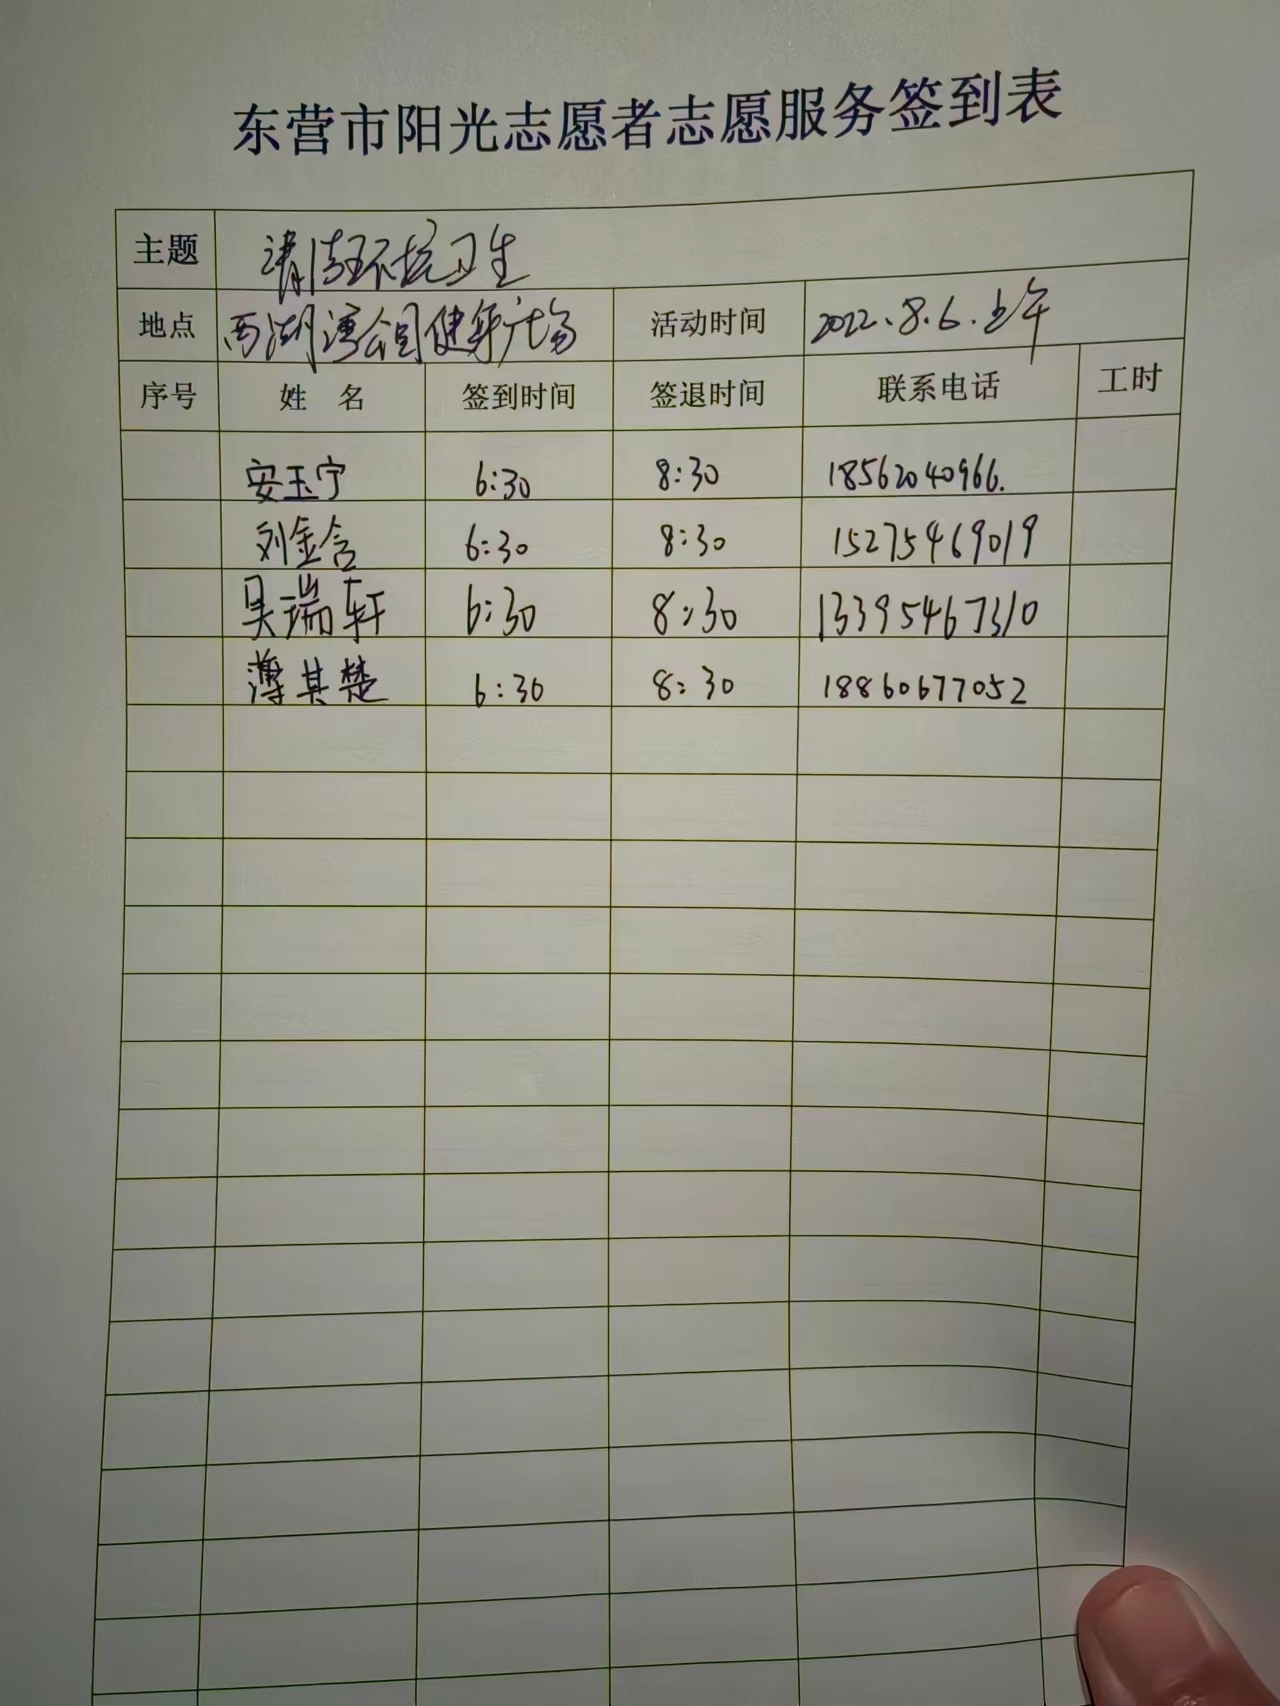 东营市阳光志愿者志愿服务签到表
主题 清洁环境卫生
地点 西湖湾公园健身广场 活动时间 2022.8.6.上午
序号 姓 名 签到时间 签退时间 联系电话 工时
安玉宁 6:30 8:30 18562040966.
刘金含 6:30 8:30 15275469019
吴瑞轩 6:30 8:30 13395467310
薄其楚 6:30 8:30 18860677052